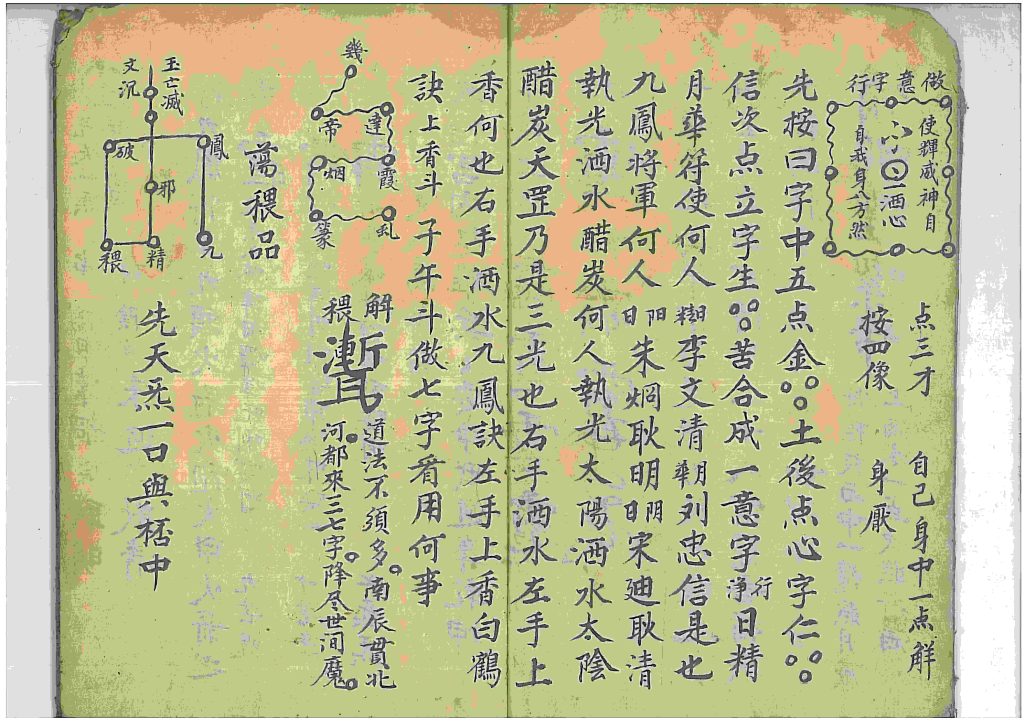 做意字行
使輝威神自
洒
自我身一方然
点三才 自己身中一点解
按四像 身厭
先按曰字中五点金土後点心字仁
信次点立字生苦合成一意字行净日精
月華符使何人糊李文清朝刘忠信是也
九鳳將軍何人 朱烱耿明 宋廸耿清
執光洒水醋炭何人執光太陽洒水太陰
醋炭天罡乃是三光也右手洒水左手上
香何也右手洒水九鳳訣左手上香白鶴
訣上香斗 子午斗做七字看用何事
幾
帝 達
烟 霞
篆 乱
解穢
道法不須多南辰貫北
河都來三七字降尽世间魔
蕩穢品
玉亡滅
文沉
破 鳳
邪
穢 精 九
先天炁一口與 中